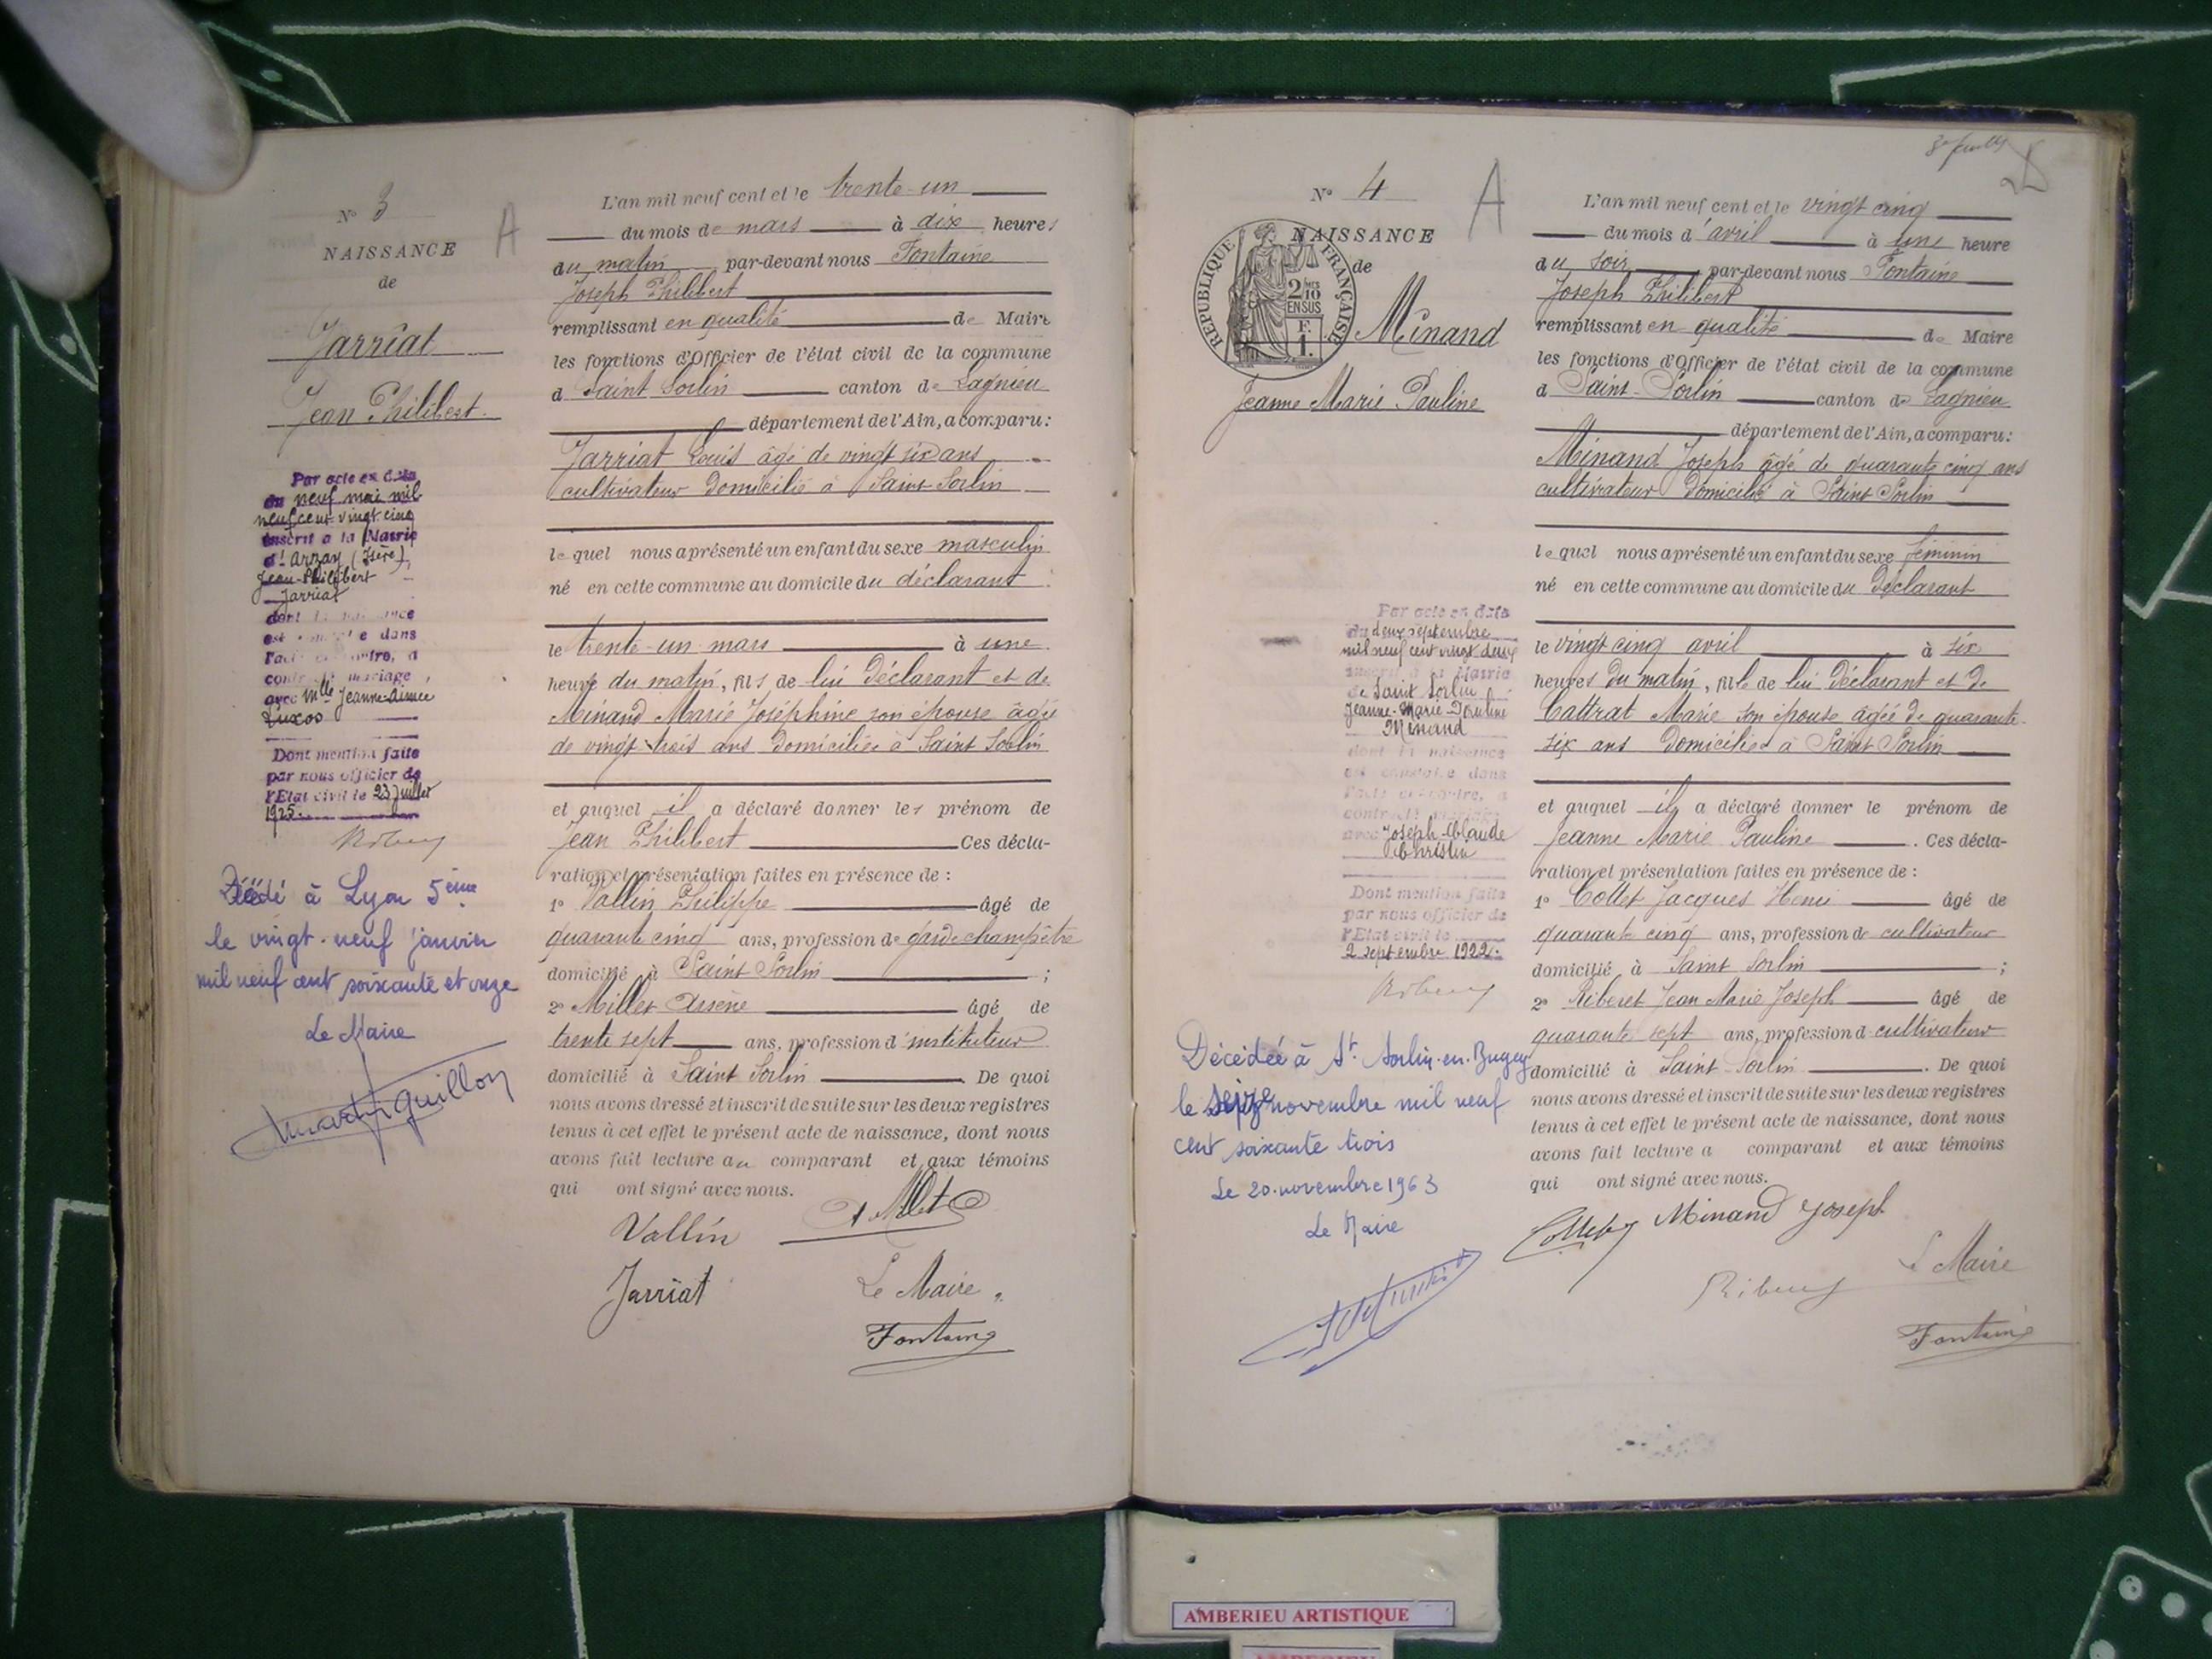 N° 3
NAISSANCE
de
Jarriat
Jean Philibert
A
Par acte en date
du neuf mai mil
neuf cent vingt cinq
inscrit à la Mairie
d' Arzay (Isère),
Jean-Philibert
Jarriat
dont la naissance
est constatée dans
l'acte ci-contre, a
contracté mariage
avec Mlle Jeanne-Aimée
Dont mention faite
par nous officier de
l'Etat civil le 23 juillet
1925.
Décédé à Lyon 5ème
le vingt-neuf janvier
mil neuf cent soixante et onze
Le Maire
L'an mil neuf cent et le trente-un
du mois de mars à dix heures
du matin par-devant nous Fontaine
Joseph Philibert
remplissant en qualité de Maire
les fonctions d'Officier de l'état civil de la commune
d Saint Sorlin canton de Lagnieu
département de l'Ain, a comparu:
Jarriat Louis âgé de vingt six ans
cultivateur domicilié à Saint Sorlin
le quel nous a présenté un enfant du sexe masculin
né en cette commune au domicile du déclarant
le trente-un mars à une
heure du matin, fils de lui déclarant et de
Minand Marie Joséphine son épouse âgée
de vingt trois ans domiciliée à Saint Sorlin
et auquel il a déclaré donner les prénom de
Jean Philibert Ces décla-
ration et présentation faites en présence de :
1° Vallin Philippe âgé de
quarante cinq ans, profession de garde champêtre
domicilié à Saint Sorlin ;
2° Millet Arsène âgé de
trente sept ans, profession d'instituteur
domicilié à Saint Sorlin . De quoi
nous avons dressé et inscrit de suite sur les deux registres
tenus à cet effet le présent acte de naissance, dont nous
avons fait lecture au comparant et aux témoins
qui ont signé avec nous.
Vallin A Millet
Jarriat Le Maire,
Fontaine
3e feuillet
N° 4
A
NAISSANCE
de
REPUBLIQUE FRANÇAISE
2/10MES
EN SUS
F.
1.
Minand
Jeanne Marie Pauline
Par acte en date
du deux septembre
mil neuf cent vingt deux
inscrit à la Mairie
de Saint Sorlin
Jeanne-Marie-Pauline
Minand
dont la naissance
est constatée dans
l'acte ci-contre, a
contracté mariage
avec Joseph-Claude
Christin
Dont mention faite
par nous officier de
l'Etat civil le
2 septembre 1922.
Décédée à St Sorlin-en-Bugey
le seize novembre mil neuf
cent soixante trois
Le 20 novembre 1963
Le Maire
L'an mil neuf cent et le vingt cinq
du mois d'avril à une heure
du soir par-devant nous Fontaine
Joseph Philibert
remplissant en qualité de Maire
les fonctions d'Officier de l'état civil de la commune
d Saint-Sorlin canton de Lagnieu
département de l'Ain, a comparu:
Minand Joseph âgé de quarante cinq ans
cultivateur domicilié à Saint Sorlin
le quel nous a présenté un enfant du sexe féminin
né en cette commune au domicile du déclarant
le vingt cinq avril à six
heures du matin, fille de lui déclarant et de
Cattrat Marie son épouse âgée de quarante-
six ans domiciliée à Saint Sorlin
et auquel il a déclaré donner le prénom de
Jeanne Marie Pauline . Ces décla-
ration et présentation faites en présence de :
1° Collet Jacques Henri âgé de
quarante cinq ans, profession de cultivateur
domicilié à Saint Sorlin ;
2° Riberet Jean Marie Joseph âgé de
quarante sept ans, profession d cultivateur
domicilié à Saint-Sorlin . De quoi
nous avons dressé et inscrit de suite sur les deux registres
tenus à cet effet le présent acte de naissance, dont nous
avons fait lecture a comparant et aux témoins
qui ont signé avec nous.
Collet Minand Joseph
Le Maire
Fontaine
AMBERIEU ARTISTIQUE